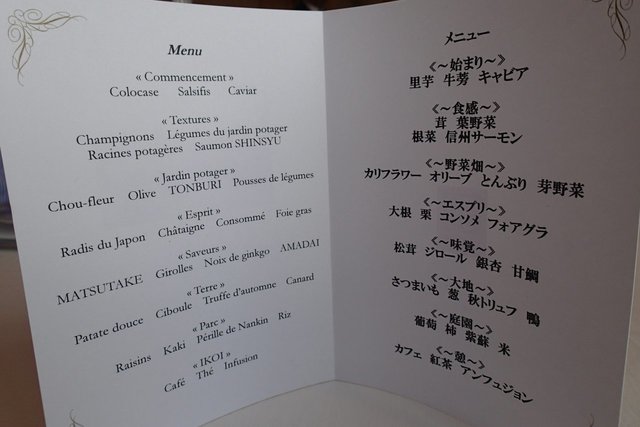 Menu
« Commencement »
Colocase Salsifis Caviar
« Textures »
Champignons Légumes du jardin potager
Racines potagères Saumon SHINSYU
« Jardin potager »
Chou-fleur Olive TONBURI Pousses de légumes
« Esprit »
Radis du Japon Châtaigne Consommé Foie gras
« Saveurs »
MATSUTAKE Girolles Noix de ginkgo AMADAI
« Terre »
Patate douce Ciboule Truffe d'automne Canard
« Parc »
Raisins Kaki Pérille de Nankin Riz
« IKOI »
Café Thé Infusion
メニュー
≪～始まり～≫
里芋 牛蒡 キャビア
≪～食感～≫
茸 葉野菜
根菜 信州サーモン
≪～野菜畑～≫
カリフラワー オリーブ とんぶり 芽野菜
≪～エスプリ～≫
大根 栗 コンソメ フォアグラ
≪～味覚～≫
松茸 ジロール 銀杏 甘鯛
≪～大地～≫
さつまいも 葱 秋トリュフ 鴨
≪～庭園～≫
葡萄 柿 紫蘇 米
≪～憩～≫
カフェ 紅茶 アンフュジョン